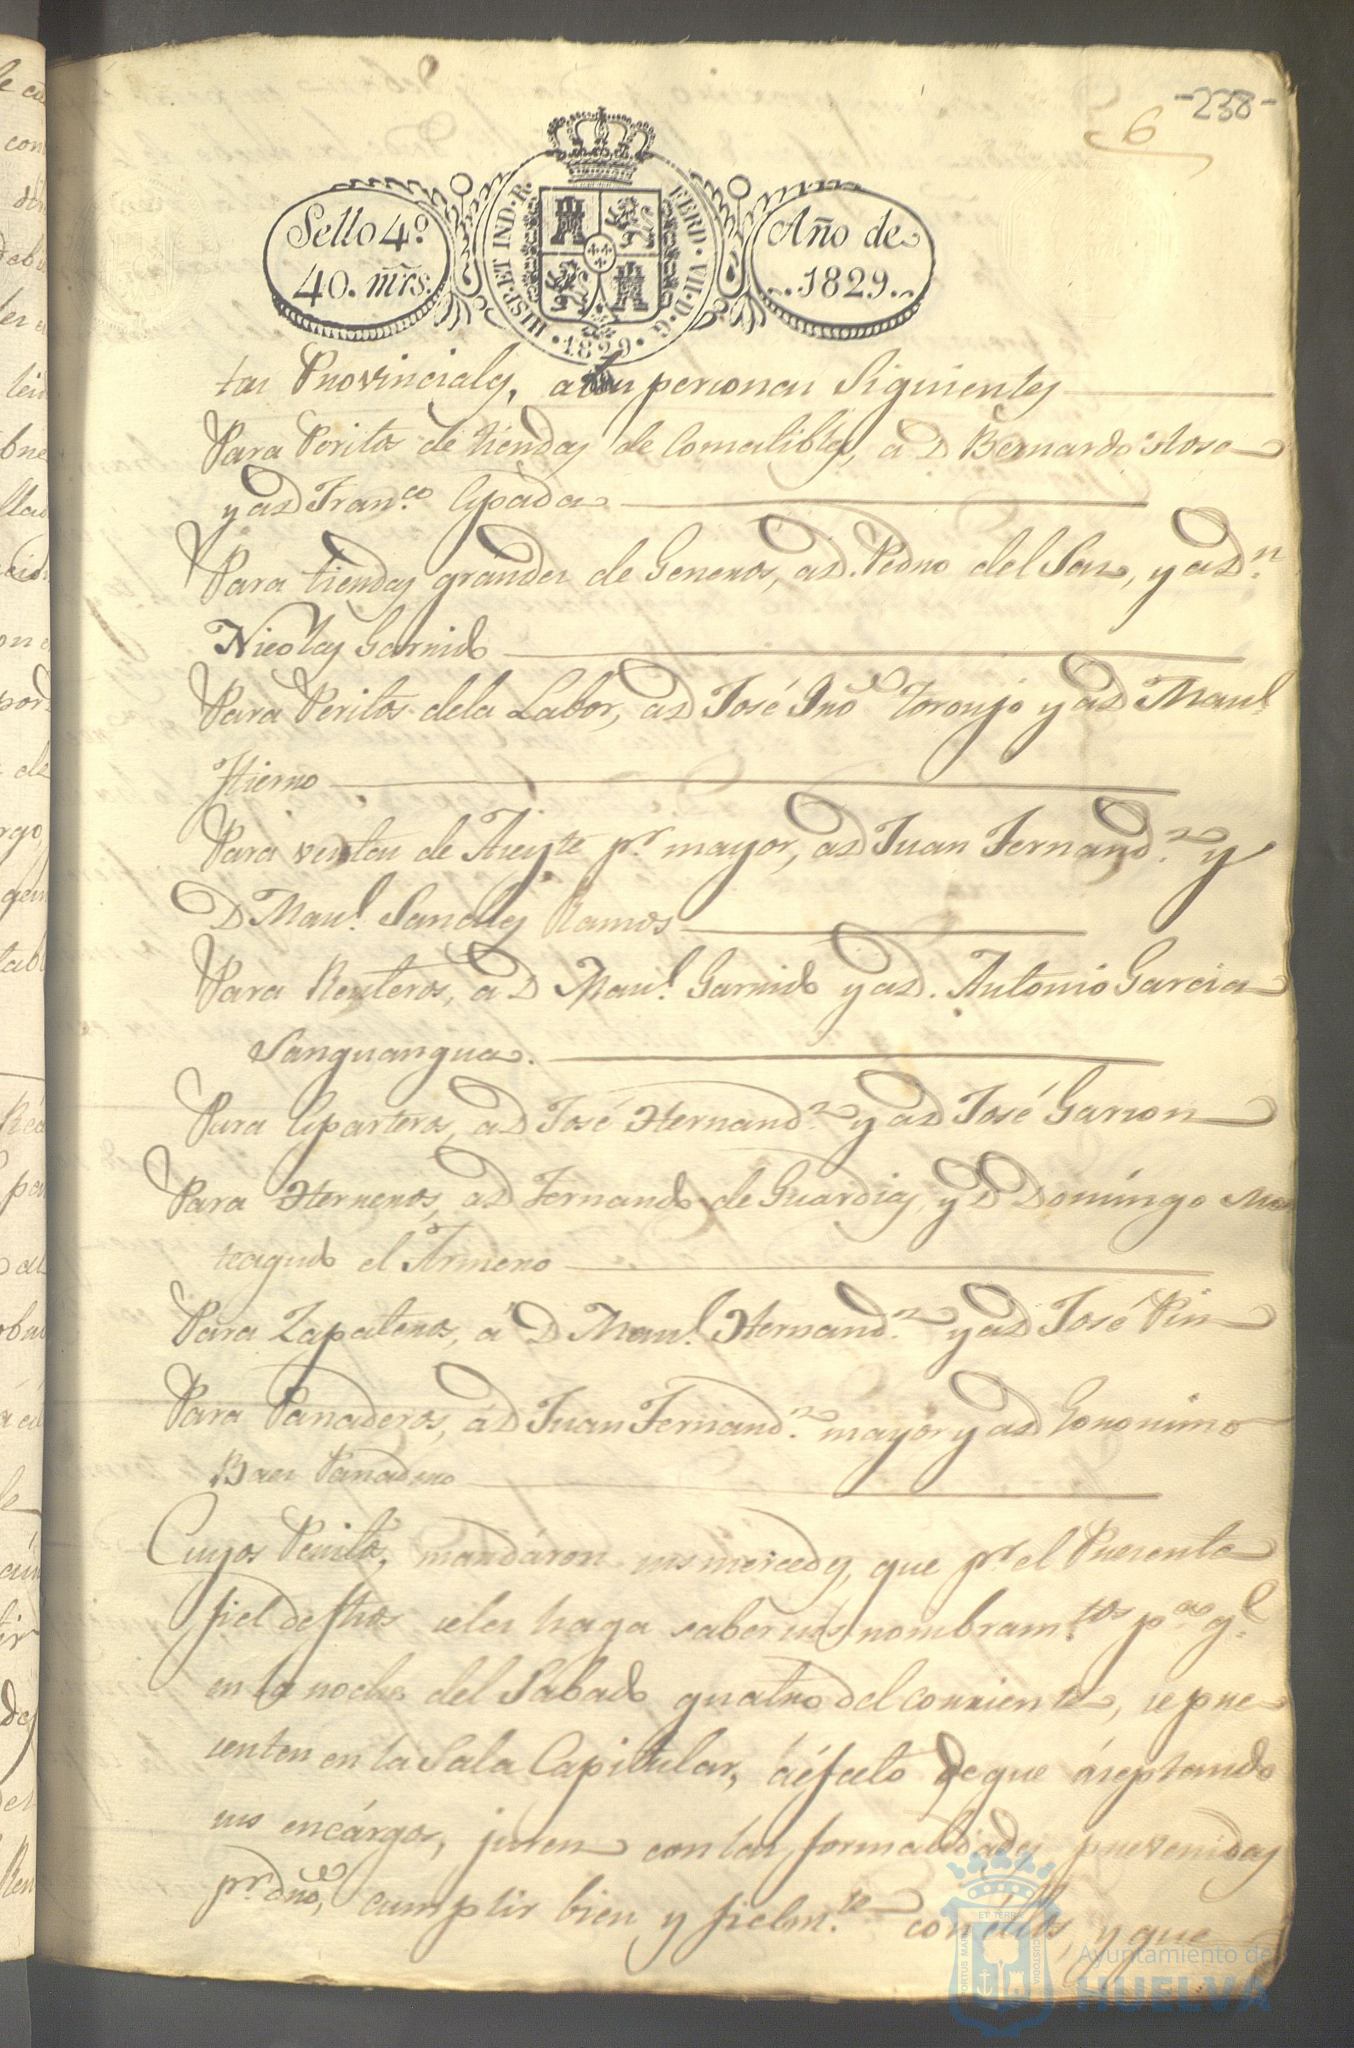 -238-
6
Sello 4º
40. mrs.
HISP. ET IND. R.
FERD. VII. D. G.
1829
Año de
1829.
tas Provinciales, a las personas Siguientes
Para Peritos de tiendas de Comestibles, a D Bernardo Rose
y a D Fran.co Espada
Para tiendas grandes de Generos, a D. Pedro del Sar, y a D.n
Nicolas Garrido
Para Peritos de la Labor, a D José Jnº Toronjo y a D Man.l
Hierro
Para ventas de Aseyte p.r mayor, a D Juan Fernand.z y
D Man.l Sanches Ramos
Para Renteros, a D Man.l Garrido y a D. Antonio Garcia
Sanguangua.
Para Esparteros, a D José Hernand.z y a D José Garzon
Para Herreros, a D Fernando de Guardias, y D Domíngo Mon
teagudo el Armero
Para Zapateros, á D Man.l Hernand.z y a D José Pin
Para Panaderos, á D Juan Fernand.z mayor y a D Geronimo
Baes Panadero
Cuyos Peritos, mandáron sus mercedes, que p.r el Presente
fiel de fhos se les haga saber sus nombram.tos p.a q.e
en la noche del Sabado quatro del corriente, se pre
senten en la Sala Capitular, á éfecto de que áseptando
sus encárgos, juren con las formalidades prevenidas
p.r dro, cumplir bien y fielm.te con éllos, y que
PORTUS MARIS ET TERRAE CUSTODIA
Ayuntamiento de
HUELVA